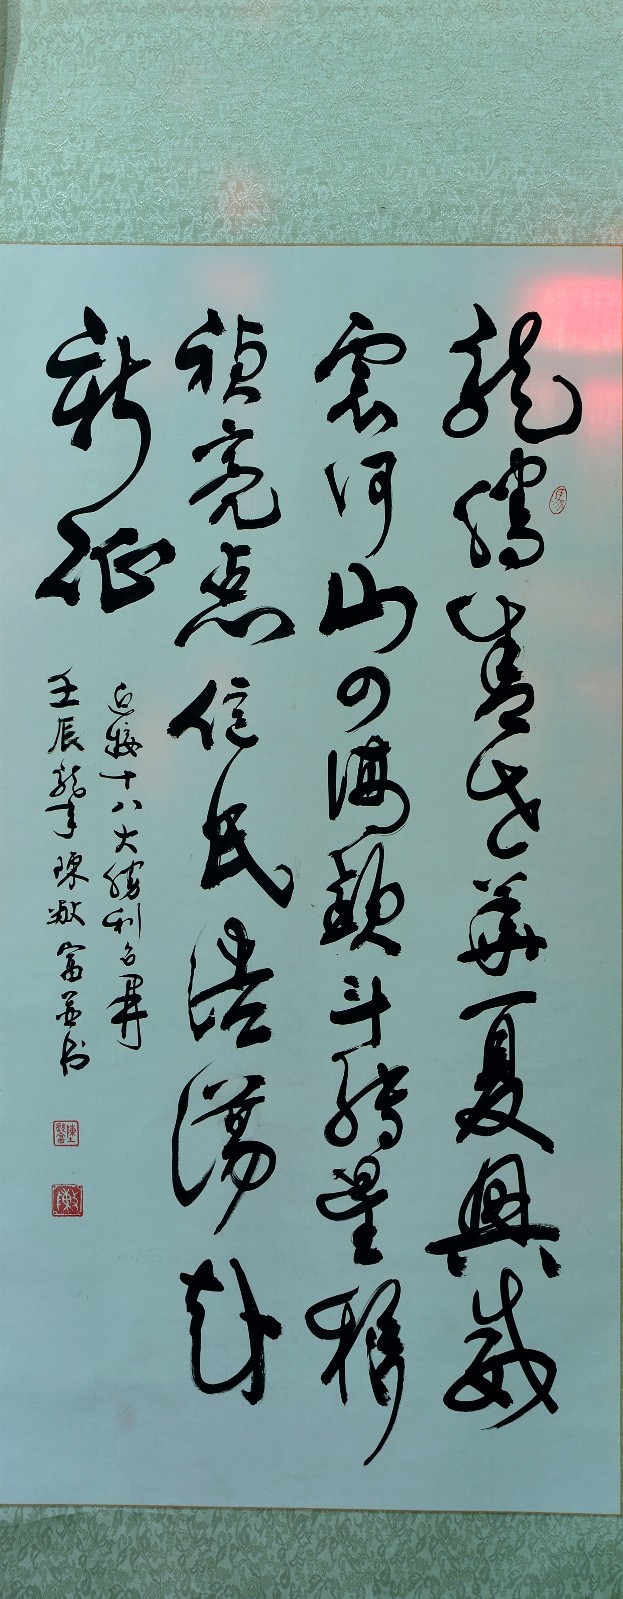 龍騰盛世華夏興威
震河山四海歡斗轉星移
禎亮点信民浩蕩赴
新征
迎接十八大勝利召開
壬辰龍年陳敬富並书